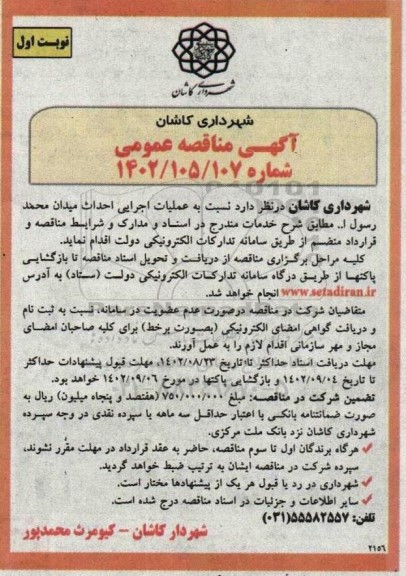 نوبت اول
شهرداری کاشان
شهرداری کاشان
آگهی مناقصه عمومی
شماره ۱۴۰۲/۱۰۵/۱۰۷
شهرداری کاشان درنظر دارد نسبت به عملیات اجرایی احداث میدان محمد
رسول ا... مطابق شرح خدمات مندرج در اسناد و مدارک و شرایط مناقصه و
قرارداد منضم از طریق سامانه تدارکات الکترونیکی دولت اقدام نماید.
کلیه مراحل برگزاری مناقصه از دریافت و تحویل اسناد مناقصه تا بازگشایی
پاکتها از طریق درگاه سامانه تدارکات الکترونیکی دولت (ستاد) به آدرس
www.setadiran.ir انجام خواهد شد.
متقاضیان شرکت در مناقصه درصورت عدم عضویت در سامانه، نسبت به ثبت نام
و دریافت گواهی امضای الکترونیکی (بصورت برخط) برای کلیه صاحبان امضای
مجاز و مهر سازمانی اقدام لازم را به عمل آورند.
مهلت دریافت اسناد حداکثر تا تاریخ ۱۴۰۲/۰۸/۲۳، مهلت قبول پیشنهادات حداکثر
تا تاریخ ۱۴۰۲/۰۹/۰۴ و بازگشایی پاکتها در مورخ ۱۴۰۲/۰۹/۰۶ خواهد بود.
تضمین شرکت در مناقصه: مبلغ ۷۵۰/۰۰۰/۰۰۰ (هفتصد و پنجاه میلیون) ریال به
صورت ضمانتنامه بانکی با اعتبار حداقل سه ماهه یا سپرده نقدی در وجه سپرده
شهرداری کاشان نزد بانک ملت مرکزی.
هرگاه برندگان اول تا سوم مناقصه، حاضر به عقد قرارداد در مهلت مقرر نشوند،
سپرده شرکت در مناقصه ایشان به ترتیب ضبط خواهد گردید.
شهرداری در رد یا قبول هر یک از پیشنهادها مختار است.
سایر اطلاعات و جزئیات در اسناد مناقصه درج شده است.
تلفن: ۵۵۵۸۲۵۵۷(۰۳۱)
شهردار کاشان - کیومرث محمدپور
۲۱۵۶